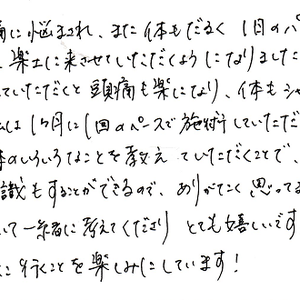 痛に悩まされ、また体もだるく1回のペ
楽土に来させていただくようになりました
ていただくと頭痛も楽になり、体もシャ
は1ヶ月に1回のペースで施術していただ
のいろいろなことを教えていただくことで、
識もすることができるので、ありがたく思ってる
いて一緒に考えてくださり とても嬉しいです
に行くことを楽しみにしています!